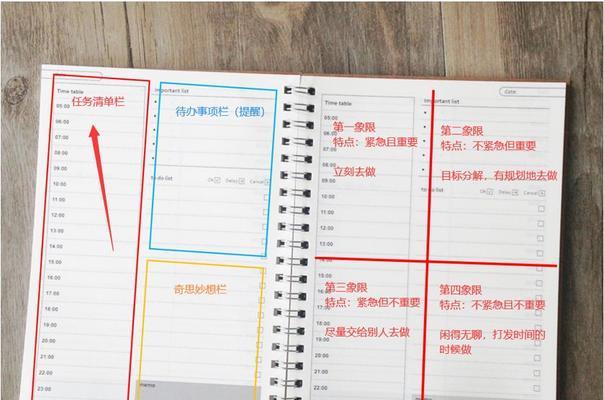 Time table
任务清单栏
05:00
06:00
07:00
08:00
09:00
10:00
11:00
12:00
13:00
14:00
15:00
16:00
17:00
18:00
19:00
20:00
21:00
22:00
23:00
Important list
待办事项栏（提醒）
to do list
Ok
Delay
Cancel
奇思妙想栏
memo
Time table
第一象限
特点：紧急且重要
立刻去做
date
Important list
第二象限
特点：不紧急但重要
目标分解，有规划地去做
to do list
Ok
Delay
Cancel
第三象限
特点：紧急但不重要
尽量交给别人去做
第四象限
特点：不紧急且不重要
闲得无聊，打发时间的
时候做
05:00
06:00
07:00
08:00
09:00
10:00
11:00
12:00
13:00
15:00
16:00
17:00
18:00
19:00
20:00
21:00
22:00